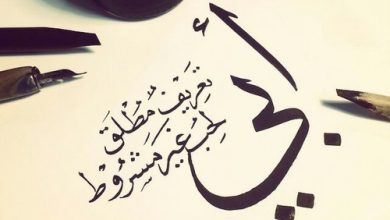 أبي
تعريف مُطْلَق
لِحُب غير مَشرُوُط